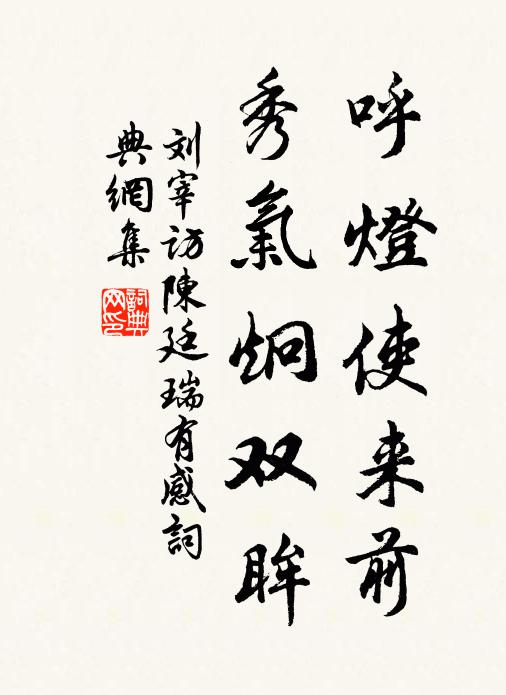 呼燈使来前
秀氣炯双眸
刘宰访陳廷瑞有感詞
典網集
詞典网印